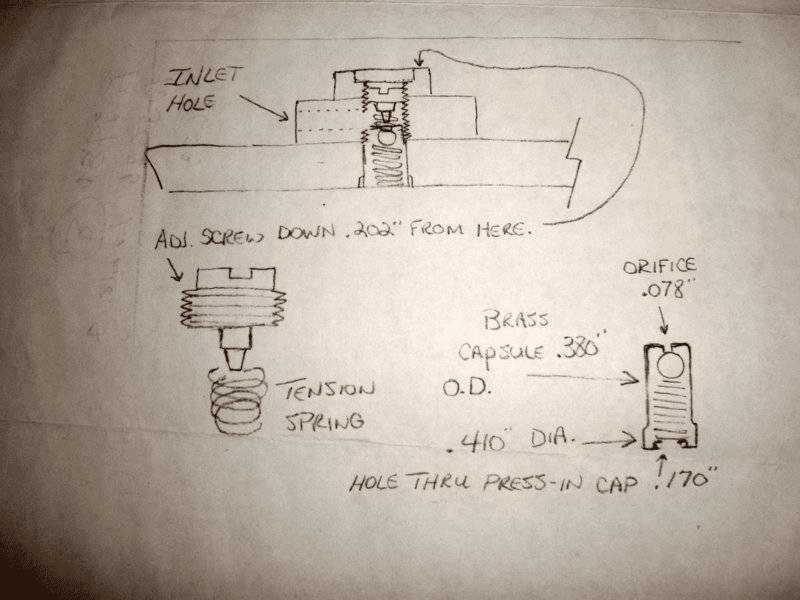 INLET
HOLE
ADJ. SCREW DOWN .202" FROM HERE.
ORIFICE
.078"
BRASS
CAPSULE .380"
O.D.
TENSION
SPRING
.410" DIA.
HOLE THRU PRESS-IN CAP .170"